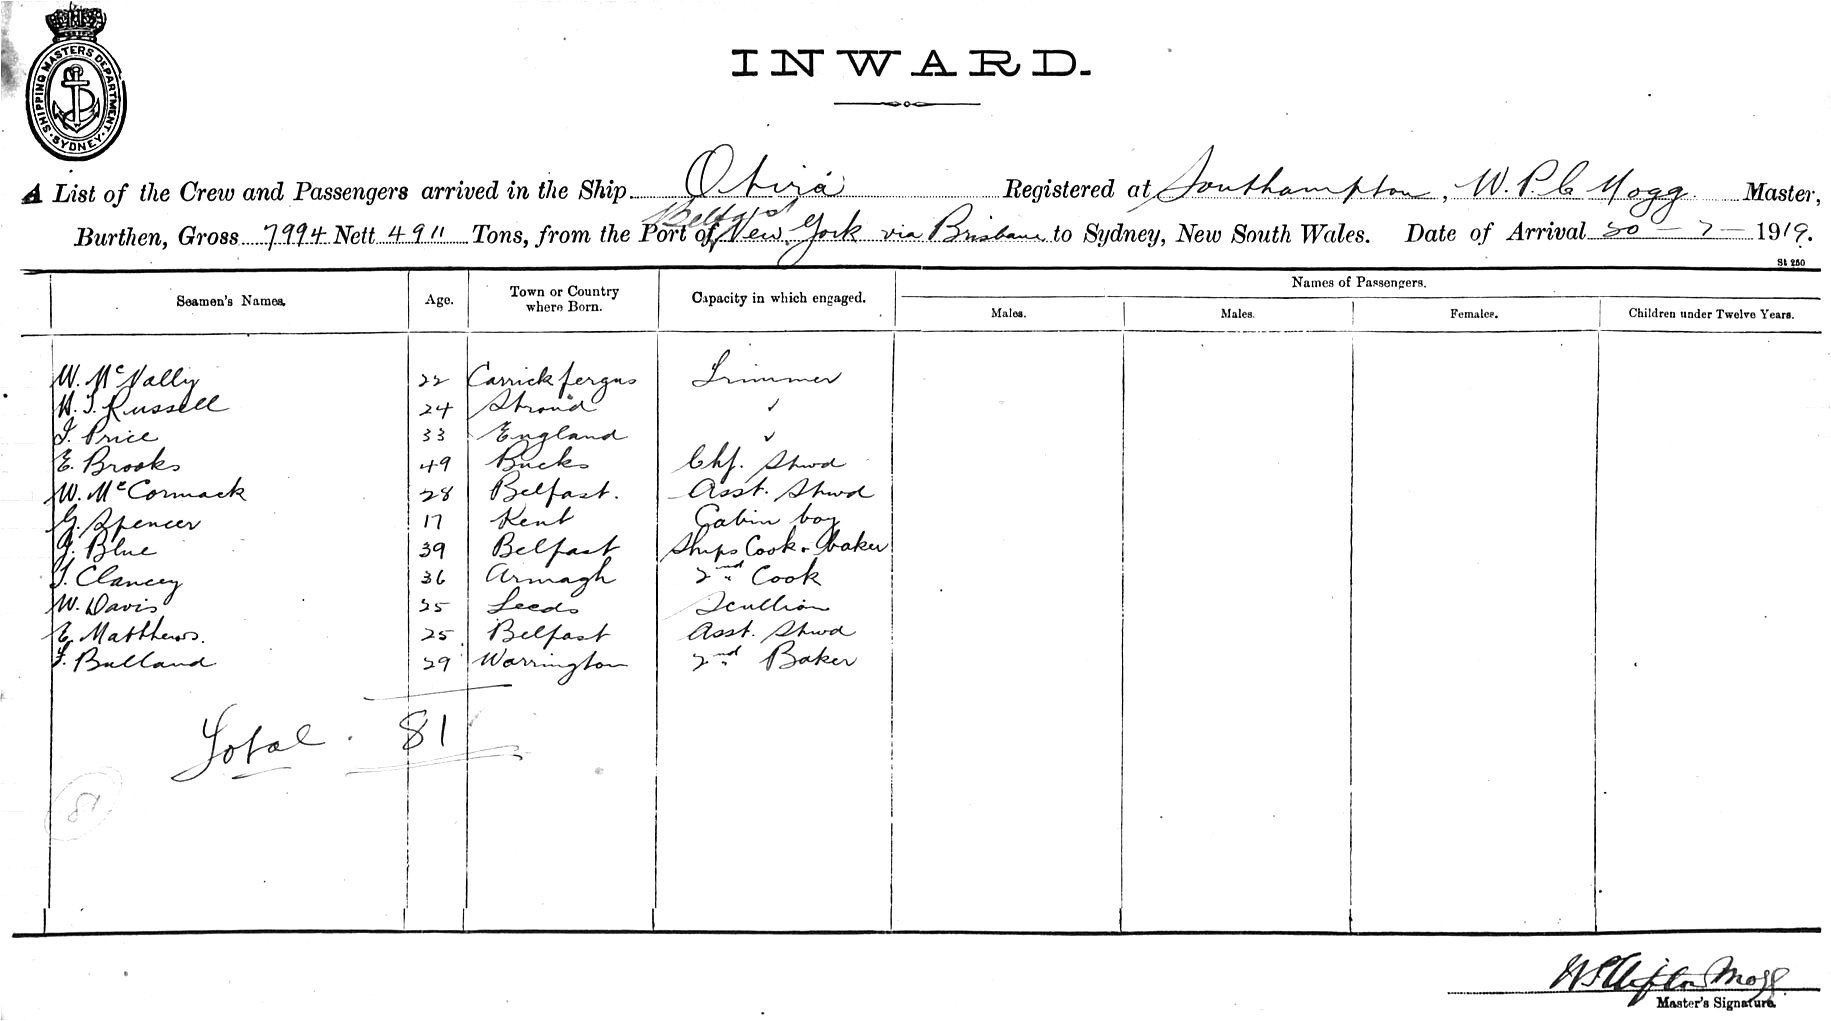 SHIPPING MASTERS DEPARTMENT · SYDNEY ·
INWARD.
A List of the Crew and Passengers arrived in the Ship Otira Registered at Southampton, W. P. C Mogg Master,
Belfast
Burthen, Gross 7994 Nett 4911 Tons, from the Port of New York via Brisbane to Sydney, New South Wales. Date of Arrival 30 - 7 - 1919.
St 250
Seamen's Names. Age. Town or Country where Born. Capacity in which engaged. Names of Passengers.
Males. Males. Females. Children under Twelve Years.
W. McNally 22 Carrickfergus Trimmer
H. T. Russell 24 Stroud ✓
T. Price 33 England ✓
E. Brooks 49 Bucks Chf. Stwd
W. McCormack 28 Belfast. Asst. Stwd
G. Spencer 17 Kent Cabin boy
J. Blue 39 Belfast Ships Cook & baker
T. Clancey 36 Armagh 2nd Cook
W. Davis 25 Leeds Scullion
E. Matthews. 25 Belfast Asst. Stwd
F. Bulland 29 Warrington 2nd Baker
Total. 81
81
W P Clifton Mogg
Master's Signature.